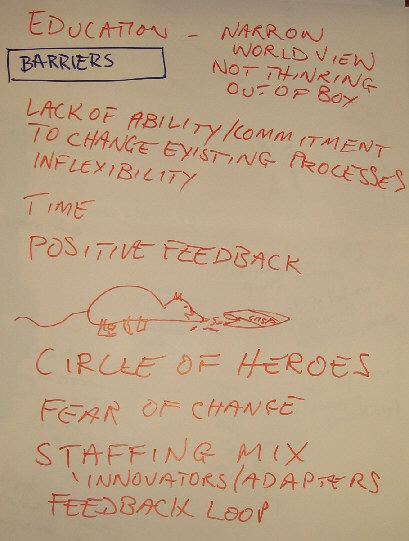 EDUCATION - NARROW
WORLD VIEW
NOT THINKING
OUT OF BOX
BARRIERS
LACK OF ABILITY/COMMITMENT
TO CHANGE EXISTING PROCESSES
INFLEXIBILITY
TIME
POSITIVE FEEDBACK
CIRCLE OF HEROES
FEAR OF CHANGE
STAFFING MIX
INNOVATORS/ADAPTERS
FEEDBACK LOOP